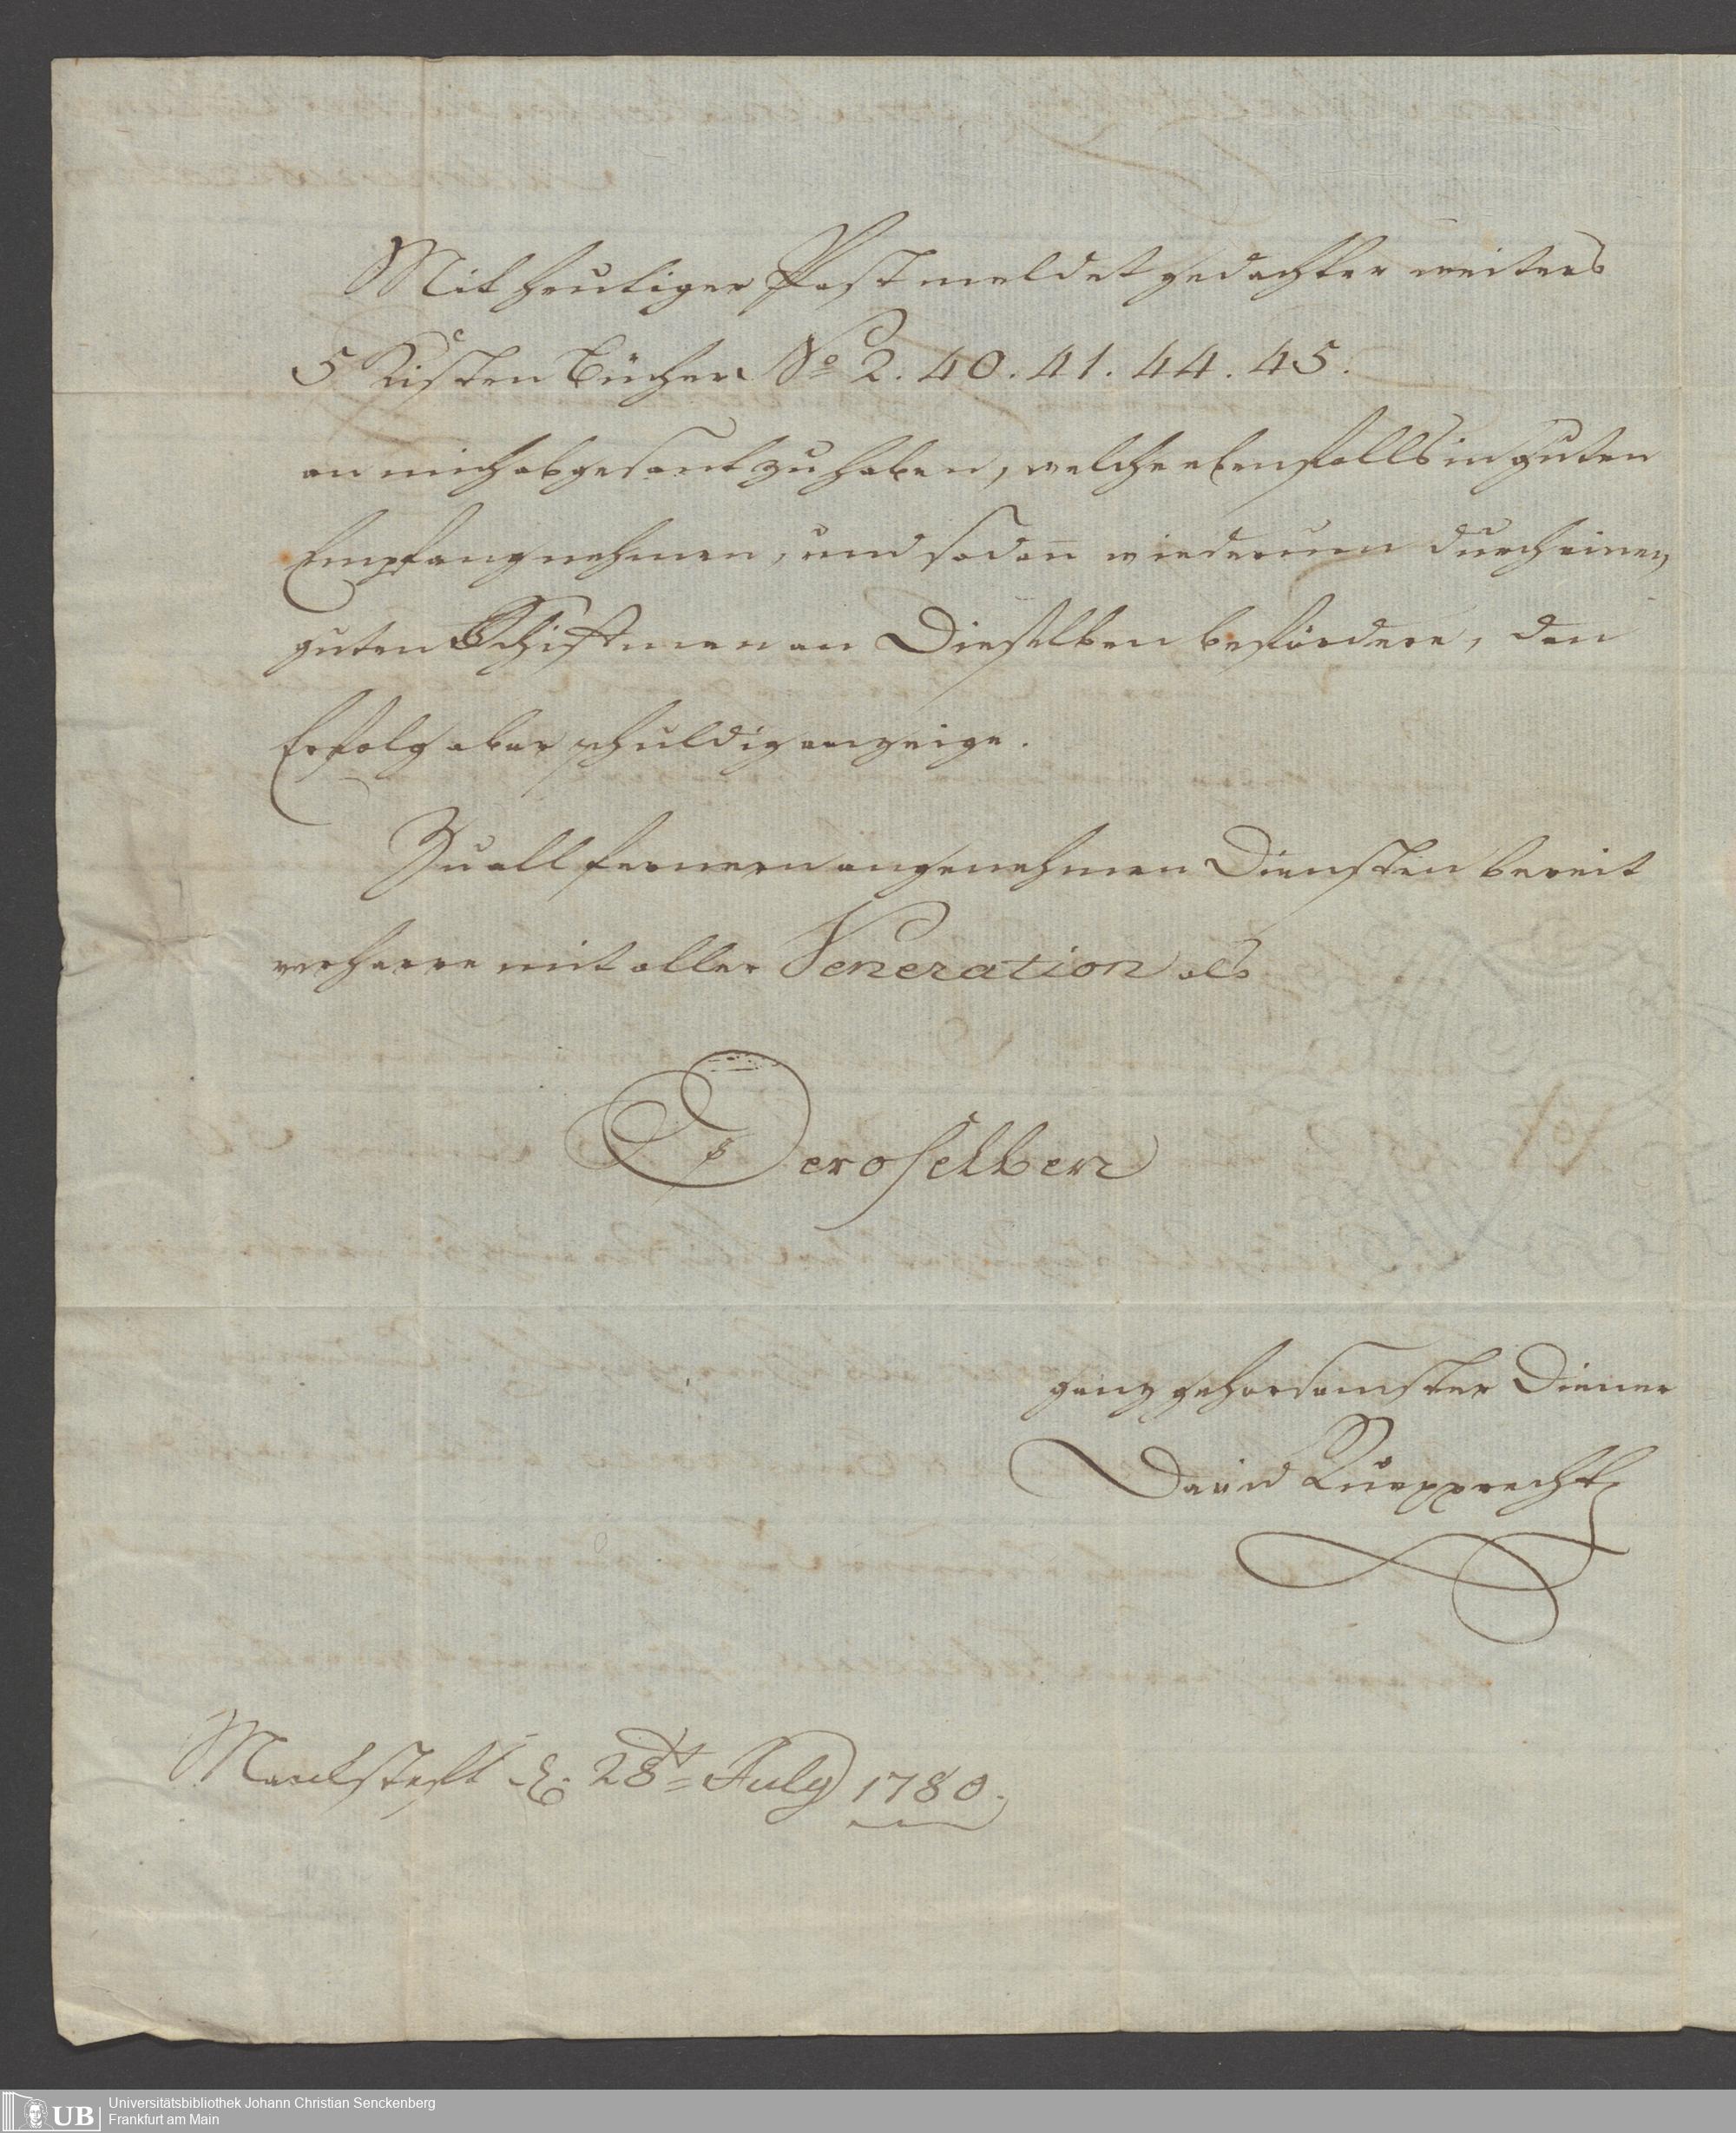 Mit heutiger Post meldet gedachter weiters
5 Kisten Bücher No 2. 40. 41. 44. 45.
an mich abgesant zu haben, welche ebenfalls in guten
Empfang nehmen, und sodan̄ wiederum durch einen
guten Schiffman an Dieselben befördere, den
Erfolg aber schuldig anzeige.
Zu all fernern angenehmen Diensten bereit
verharre mit aller Veneration als
Deroselben
ganz gehorsamster Diener
David Ruepprecht
Marckstefft d. 28t July 1780.
UB
Universitätsbibliothek Johann Christian Senckenberg
Frankfurt am Main